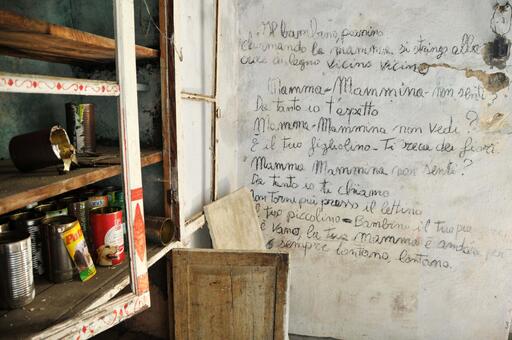 Il bambino piccino
chiamando la mamma si stringe alla
croce di legno vicino vicino
Mamma-Mammina-non senti
Da tanto io t'aspetto
Mamma-Mammina non vedi?
è il tuo figliolino-Ti reca dei fiori
Mamma Mammina non senti?
Da tanto io te chiamo
non torni più presso il lettino
il tuo piccolino-Bambino il tuo
è vano la tua mamma è andata per
sempre lontano, lontano.